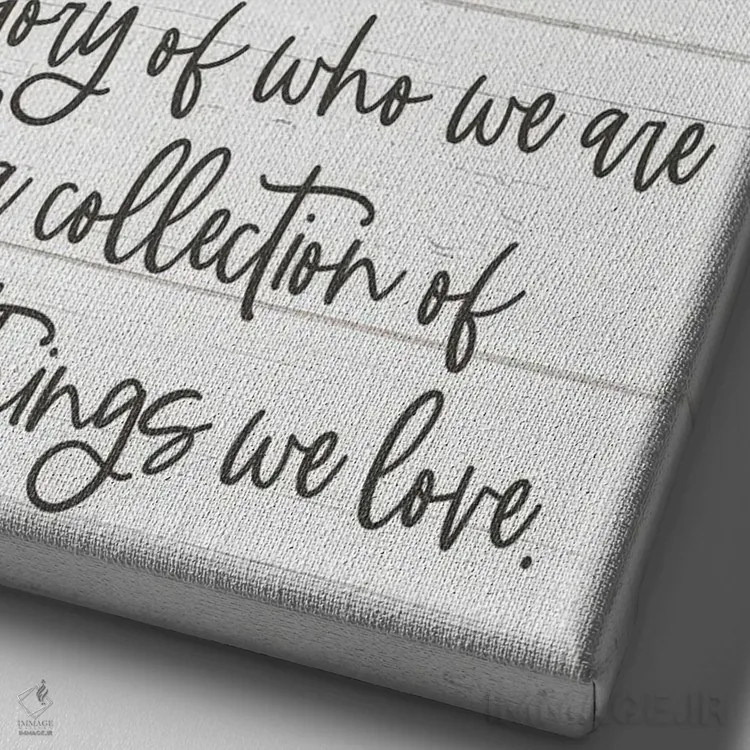 ory of who we are
a collection of
ings we love.
IMMAGE
IMMAGE.IR
IMMAGE.IR